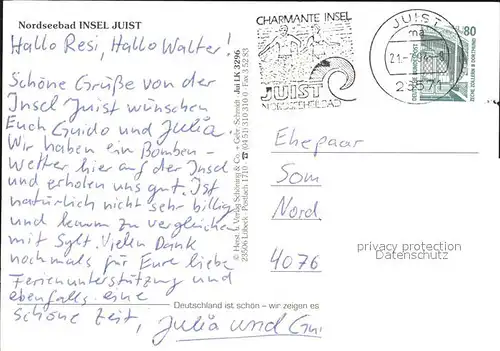 Nordseebad INSEL JUIST
Hallo Resi, Hallo Walter!
Schöne Grüße von der
Insel Juist wünschen
Euch Guido und Julia!
Wir haben ein Bomben-
Wetter hier auf der Insel
und erholen uns gut. Ist
natürlich nicht sehr billig
und kaum zu vergleichen
mit Sylt. Vielen Dank
nochmals für Eure liebe
Ferienunterstützung und
ebenfalls eine
schöne Zeit,
Julia und Gui
Deutschland ist schön – wir zeigen es
© Herst. u. Verlag Schöning & Co. + Gebr. Schmidt Jui LK 3296
23506 Lübeck · Postfach 1710 ☎ (04 51) 310 310 · Fax 3 52 83
CHARMANTE INSEL
JUIST
NORDSEEHEILBAD
JUIST
ma
21.-7.
26571
DEUTSCHE BUNDESPOST
80
ZECHE ZOLLERN II · DORTMUND
Ehepaar
Som
Nord
4076
privacy protection
Datenschutz